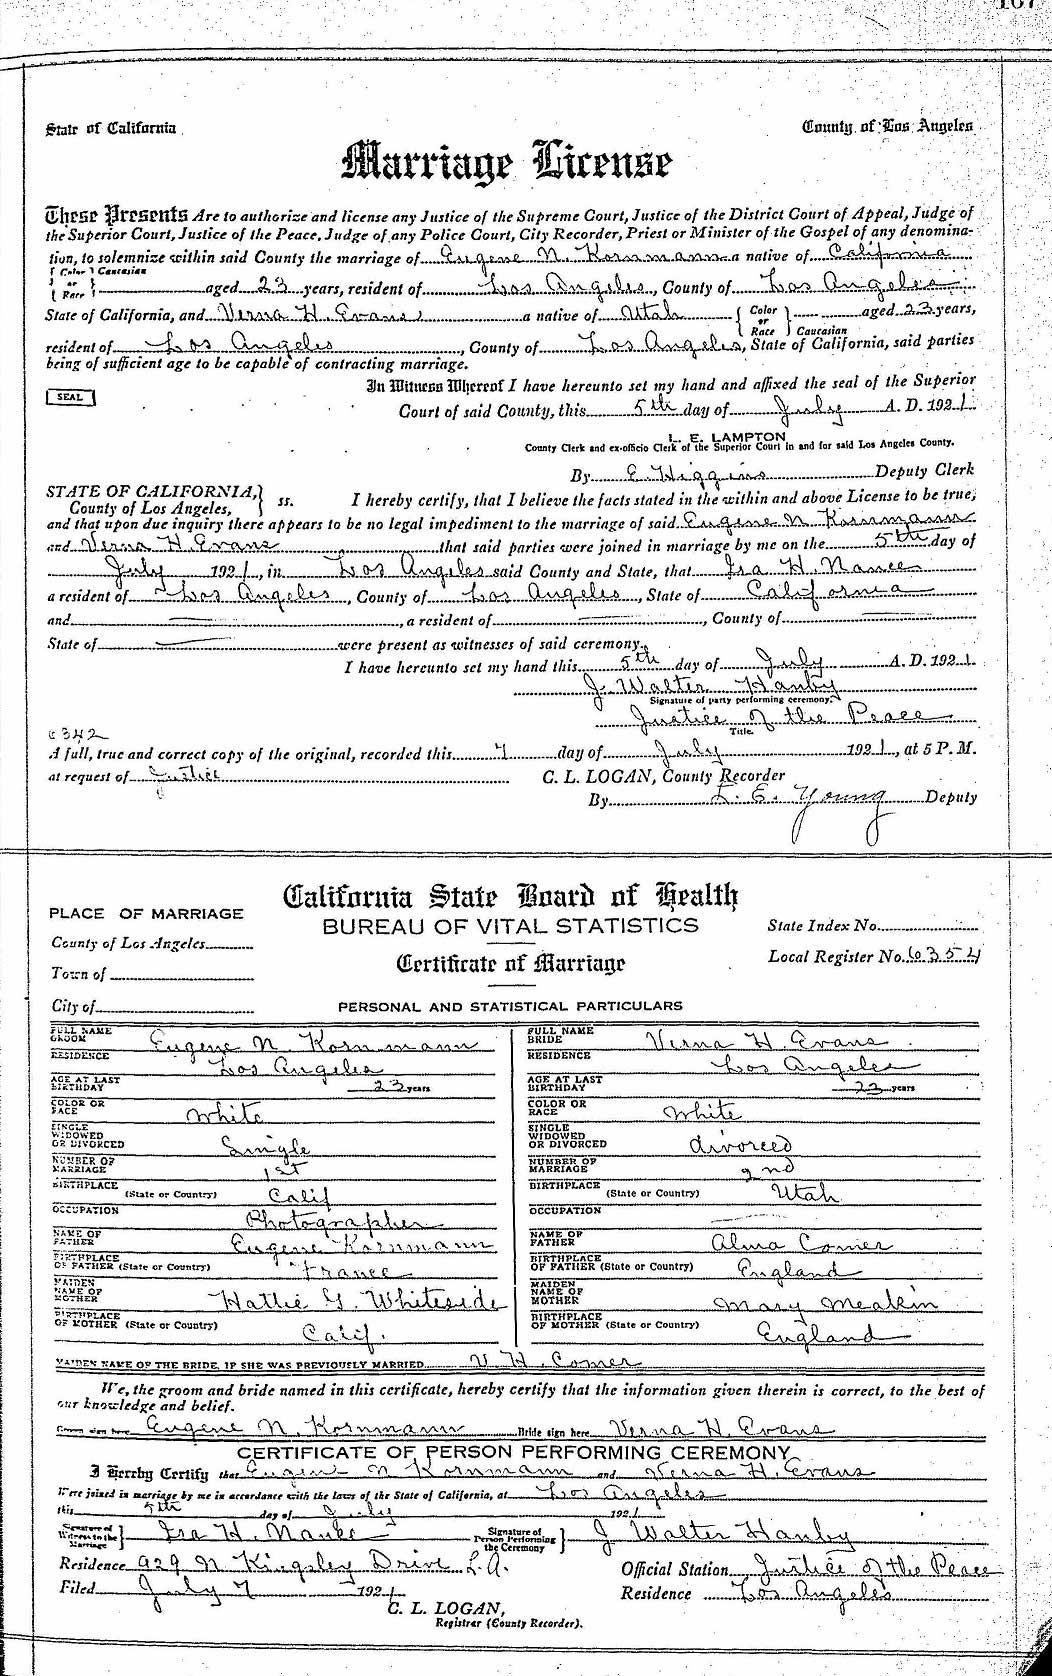 167
State of California County of Los Angeles
Marriage License
These Presents Are to authorize and license any Justice of the Supreme Court, Justice of the District Court of Appeal, Judge of
the Superior Court, Justice of the Peace, Judge of any Police Court, City Recorder, Priest or Minister of the Gospel of any denomina-
tion, to solemnize within said County the marriage of Eugene N. Kornmann a native of California
{ Color or Race } Caucasian aged 23 years, resident of Los Angeles, County of Los Angeles
State of California, and Verna H. Evans a native of Utah { Color or Race } Caucasian aged 23 years,
resident of Los Angeles, County of Los Angeles, State of California, said parties
being of sufficient age to be capable of contracting marriage.
In Witness Whereof I have hereunto set my hand and affixed the seal of the Superior
SEAL
Court of said County, this 5th day of July A. D. 1921.
L. E. LAMPTON
County Clerk and ex-officio Clerk of the Superior Court in and for said Los Angeles County.
By E. Higgins Deputy Clerk
STATE OF CALIFORNIA, County of Los Angeles, } ss. I hereby certify, that I believe the facts stated in the within and above License to be true,
and that upon due inquiry there appears to be no legal impediment to the marriage of said Eugene N Kornmann
and Verna H. Evans that said parties were joined in marriage by me on the 5th day of
July 1921, in Los Angeles said County and State, that Ira H. Nance
a resident of Los Angeles, County of Los Angeles, State of California
and , a resident of , County of
State of were present as witnesses of said ceremony.
I have hereunto set my hand this 5th day of July A. D. 1921.
J. Walter Hanby
Signature of party performing ceremony.
Justice of the Peace
Title.
A full, true and correct copy of the original, recorded this 7 day of July 1921, at 5 P. M.
at request of Justice C. L. LOGAN, County Recorder
By L. E. Young Deputy
California State Board of Health
PLACE OF MARRIAGE BUREAU OF VITAL STATISTICS State Index No.
County of Los Angeles
Certificate of Marriage Local Register No. 6354
Town of
City of PERSONAL AND STATISTICAL PARTICULARS
FULL NAME GROOM Eugene N. Kornmann FULL NAME BRIDE Verna H. Evans
RESIDENCE Los Angeles RESIDENCE Los Angeles
AGE AT LAST BIRTHDAY 23 years AGE AT LAST BIRTHDAY 23 years
COLOR OR RACE White COLOR OR RACE White
SINGLE WIDOWED OR DIVORCED Single SINGLE WIDOWED OR DIVORCED divorced
NUMBER OF MARRIAGE 1st NUMBER OF MARRIAGE 2nd
BIRTHPLACE (State or Country) Calif BIRTHPLACE (State or Country) Utah
OCCUPATION Photographer OCCUPATION
NAME OF FATHER Eugene Kornmann NAME OF FATHER Alma Comer
BIRTHPLACE OF FATHER (State or Country) France BIRTHPLACE OF FATHER (State or Country) England
MAIDEN NAME OF MOTHER Hattie G. Whiteside MAIDEN NAME OF MOTHER Mary Meakin
BIRTHPLACE OF MOTHER (State or Country) Calif. BIRTHPLACE OF MOTHER (State or Country) England
MAIDEN NAME OF THE BRIDE, IF SHE WAS PREVIOUSLY MARRIED V. H. Comer
We, the groom and bride named in this certificate, hereby certify that the information given therein is correct, to the best of
our knowledge and belief.
Groom sign here Eugene N. Kornmann Bride sign here Verna H. Evans
CERTIFICATE OF PERSON PERFORMING CEREMONY
I Hereby Certify that Eugene N Kornmann and Verna H. Evans
Were joined in marriage by me in accordance with the laws of the State of California, at Los Angeles
this 5th day of July 1921
Signature of Witness to the Marriage } Ira H. Nance Signature of Person Performing the Ceremony } J Walter Hanby
Residence 929 N Kingsley Drive L.A. Official Station Justice of the Peace
Filed July 7 1921 Residence Los Angeles
C. L. LOGAN,
Registrar (County Recorder).